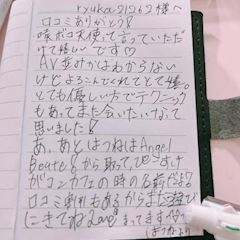 ryuka21262様へ
口コミありがとう!
味ポコ天使って言っていただけて嬉しいです♡
AV並みかはわからない
けどよろこんでくれてとても嬉
とても優しい方でテクニック
もあってまた会いたいなって
思いました!
あ、あとはつねはAngel
Beats!から取って、
がコンカフェの時の名前だよ?
口コミ割引もあるからまた遊び
にきてねLove まってます
はつねより